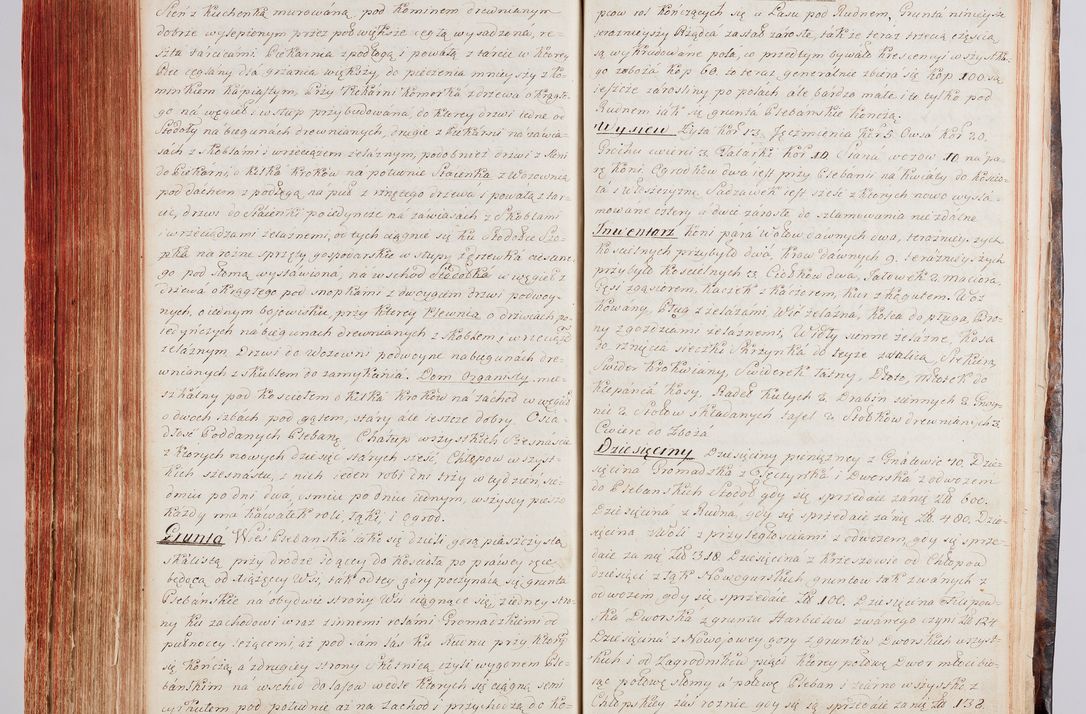 Sień z Kuchenką murowaną pod kominem drewnianym
dobrze wylepionym przez pół większe cegłą wysadzona, re-
szta tarcicami Piekarnia z podłogą i powałą z tarcic w ktorey
Piec ceglany dla grzania większy, do pieczenia mnieyszy z Ko-
minkiem kapiastym, Przy Piekarni Komorka z drzewa okrągłe-
go na węgieł i w słup przybudowana, do ktorey drzwi iedne od
Stodoły na biegunach drewnianych, drugie z Piekarni na zawia-
sach z skoblami i wrzeciązem żelaznym, podobnież drzwi z Sieni
do Piekarni, o kilka krokow na południe Staienka z Wozownią
pod dachem z podłogą na puł z rzniętego drzewa i powałą z tar-
cic, drzwi do Staienki poiedyncze na zawiasach z Skoblami
i wrzeciądzami żelaznemi, od tych ciągnie się ku Stodole Szo-
pka na rożne sprzęty gospodarskie w słupy
go pod słomą wystawiona, na wschod Stodołka w węgieł z
drzewa okrągłego pod snopkami z dwoygiem drzwi podwoy-
nych, o iednym boiowisku, przy ktorey Plewnia o drzwiach po-
iedynczych na biegunach drewnianych z skoblem i wrzeciądz
żelaznym Drzwi do Wozowni podwoyne na biegunach dre-
wnianych z skublem do zamykania. Dom Organisty mie-
szkalny pod Kosciołem o kilka krokow na zachod w węgieł
o dwoch izbach pod gątem, stary ale ieszcze dobry. Osia-
dłość Poddanych Plebana Chałup wszystkich Szesnascie
z ktorych nowych dziesięc starych szesć, Chłopow wszyst-
kich szesnastu, z nich ieden robi dni trzy w tydzien sie-
dmiu po dni dwa, osmiu po dniu iednym, wszyscy pieszo
kazdy ma kawałek roli, łąki, i ogrod.
Grunta Wieś Plebanska iako się dzieli gorą piasczystą
skalistą przy drodze idącey do Kościoła po prawey ręce
będącą od leżącey Wsi, tak od tey gory poczynaią się grunta
Plebanskie na obydwie strony Wsi ciągnące się, z iedney stro-
ny ku zachodowi wraz z innemi rolami Gromadzkiemi od
pułnocy leżącemi, aż pod sam las ku Rudnu przy ktorym
się kończą, a z drugiey strony Skotnicą czyli wygonem Ple-
bańskim na wschod do lasow wedle ktorych się ciągną
pod południe aż na zachod i przychodzą do Ko-
pcow rol kończących się w Lasu pod Rudnem, Grunta ninieysze
terazniejszy Rządca zastał zarosłe, tak że teraz trzecią częścią
są wykrudowane pola, co przedtym bywało krescencyi wszystkie-
go zboża kop 60. to teraz generalnie zbiera się kop 100. są
ieszcze zarosliny po polach ale bardzo małe i to tylko pod
Rudnem iak się grunta Plebanskie kończą.
Wysiew Żyta Kor 13. Jęczmienia Kor 5. Owsa Kor 20.
Grochu cwierci 3. Tatarki Kor 10 Siana wozow 10 na pa-
rę koni. Ogrodkow dwa iest przy Plebanii na Kwiaty do kościo-
ła i Włoszczyznę Sadzawek iest sześć z ktorych nowo wyszla-
mowane cztery a dwie zarosłe do szlamowania niezdalne
Inwentarz Koni para Wołow dawnych dwa, teraznieyszych
Kościelnych przybyło dwa, Krow dawnych 9. teraznieyszych
przybyło Kościelnych 3. Ciołkow dwa, Jałowek 2. maciora,
Gęsi z gąsiorem, kaczek z kaczorem, kur z kogutem. Woz
kowany, Pług z żelazami, Woz żelazna, Kolca do pługa, Bro-
ny z gozdziami żelaznemi, Widły sienne żelazne, Kosa
do rznięcia sieczki Skrzynka do teyże z stalicą, Siekiera
Swider krokwiany, Swiderek łatny, Dłoto, Młotek do
klepania Kosy, Radeł kutych 2. Drabin siennych 2. Gnoy-
nic 2. Stołow składanych Tafel 2. Stołkow drewnianych 3.
Cwierc do Zboża
Dziesięciny Dziesięciny pienięzney z Gnatowic 40. Dzie-
sięcina Gromadzka z Tęczynka i Dworska z odwozem
do Plebanskich Stodoł gdy się sprzedaie za nię Zł 600.
Dziesięcina z Rudna, gdy się sprzedaie za nię Zł. 480. Dzie-
sięcina z Woli z przyległościami z odwozem, gdy się sprze-
daie za nię Zł 318 Dziesięcina z Krzeszowic od Chłopow
dziesięć z łąk Nowogurskich gruntow tak zwanych z
odwozem gdy się sprzedaie Zł 100. Dziesięcina Filipow-
ska Dworska z gruntu Harbutow zwanego czyni Zł 124
Dziesięcina z Nowojowey gory z gruntow Dworskich wszyst-
kich i od Zagrodnikow pięciu ktorey połowę Dwor młoci bio-
rąc połowę słomy a połowę Pleban i ziarno wszystko z
Chłopskiey zaś rocznie gdy się sprzedaie za nię Zł 138.